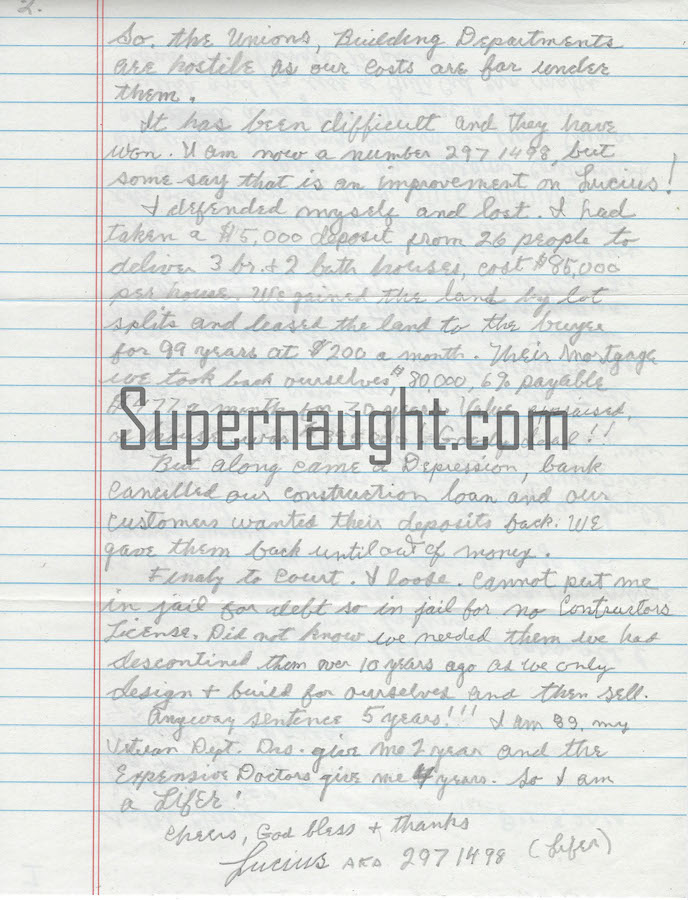 2.
So. the Unions, Building Departments
are hostile as our costs are far under
them.
It has been difficult and they have
won. I am now a number 2971498, but
some say that is an improvement on Lucius!
I defended myself and lost. I had
taken a $15,000 deposit from 26 people to
deliver 3 br. + 2 bath houses, cost $85,000
per house. We gained the land by lot
splits and leased the land to the buyer
for 99 years at $200 a month. Their Mortgage
we took back ourselves, $80,000, 6% payable
$477 a month for 30 years. Value
Supernaught.com
house was deal!!
But along came a Depression, bank
cancelled our construction loan and our
customers wanted their deposits back. WE
gave them back until out of money.
Finaly to court. I loose. Cannot put me
in jail for debt so in jail for no Contractors
License. Did not know we needed them we had
descontined them over 10 years ago as we only
design + build for ourselves and then sell.
Anyway sentence 5 years!!! I am 89, my
Dept. Drs. give me 2 year and the
Expensive Doctors give me 4 years. So I am
a LIFER!
Cheers, God bless + thanks
Lucius AKA 2971498 (Lifer)